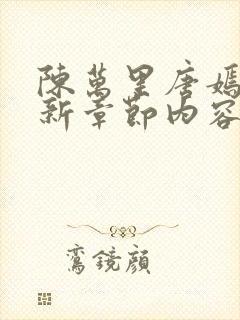 陳萬里唐嫣
新章節內容
鸞鏡顏